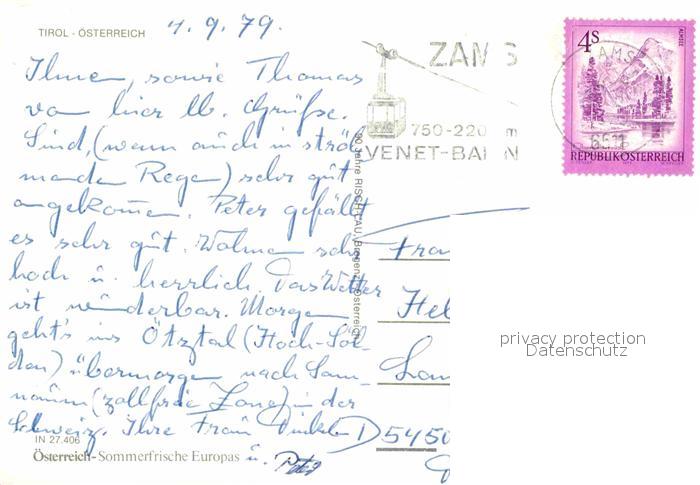 TIROL - ÖSTERREICH
1.9.79.
Ihnen, sowie Thomas
von hier lb. Grüße.
Sind, (wenn auch in strö-
mendem Regen) sehr gut
angekommen. Peter gefällt
es sehr gut. Wohnen sehr
hoch u. herrlich. Das Wetter
ist wunderbar. Morgen
geht's ins Ötztal (Hoch-Söl-
den) übermorgen nach Sam-
naun (zollfreie Zone) in der
Schweiz. Ihre Frau
u. Peter
IN 27.406
Österreich - Sommerfrische Europas
90 Jahre RISCH-LAU, Bregenz, Österreich
ZAMS
750-220
VENET-BAHN
4S
ALMSEE
REPUBLIK ÖSTERREICH
AMS
6511
Frau
Hel
D 5450
privacy protection
Datenschutz